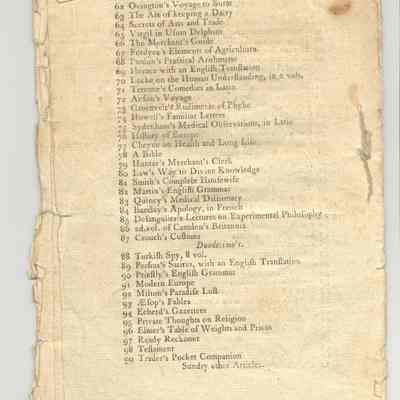 62 Ovington's Voyage to Surat
63 The Art of keeping a Dairy
64 Secrets of Arts and Trade
65 Virgil in Usum Delphini
66 The Merchant's Guide
67 Fordyce's Elements of Agriculture
68 Practical Arithmetic
69 Horace with an English Translation
70 Locke on the Human Understanding, in 2 vols.
71 Terence's Comedies in Latin
72 Anson's Voyage
73 Groenvelt's Rudiments of Physic
74 Howell's Familiar Letters
75 Sydenham's Medical Observations, in Latin
76 History of Europe
77 Cheyne on Health and Long Life
78 A Bible
79 Hunter's Merchant's Clerk
80 Law's Way to Divine Knowledge
81 Smith's Complete Housewife
82 Martin's English Grammar
83 Quincy's Medical Dictionary
84 Barclay's Apology, in French
85 Desaguliers's Lectures on Experimental Philosophy
86 2d.vol. of Camden's Britannia
87 Crouch's Customs
Duodecimo's.
88 Turkish Spy, 8 vol.
89 Persius's Satires, with an English Translation
90 Priestly's English Grammar
91 Modern Europe
92 Milton's Paradise Lost
93 Æsop's Fables
94 Echard's Gazetteer
95 Private Thoughts on Religion
96 Table of Weights and Prices
97 Ready Reckoner
98 Testament
99 Trader's Pocket Companion
Sundry other Articles.